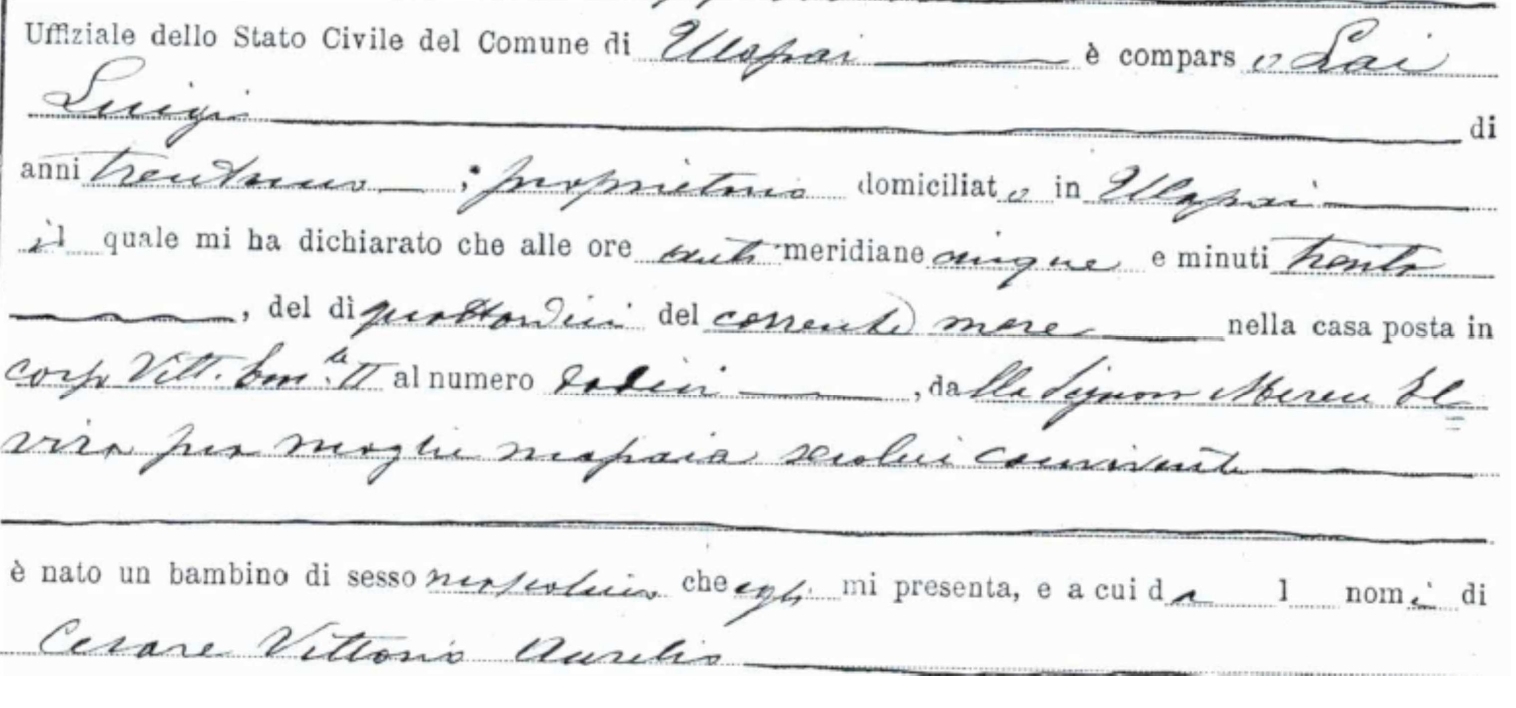 Uffiziale dello Stato Civile del Comune di Ulassai è compars o Lai
Luigi di
anni trentuno, proprietario domiciliat o in Ulassai
il quale mi ha dichiarato che alle ore anti meridiane cinque e minuti trenta
, del dì quattordici del corrente mese nella casa posta in
corso Vitt. Em.le II al numero dodici, dalla Signora Mereu El
vira sua moglie seco lui convivente
è nato un bambino di sesso mascolino che egli mi presenta, e a cui da l nomi di
Cesare Vittorio Aurelio